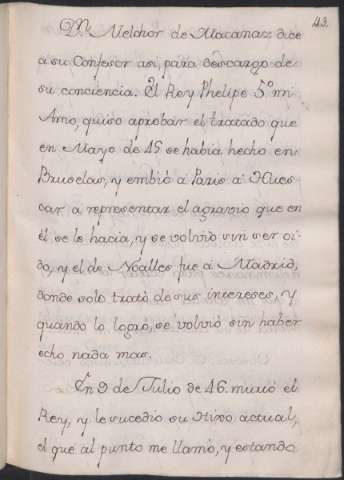 43.
Dn. Melchor de Macanaz dice
á su Confesor asi, para descargo de
su conciencia. El Rey Phelipe 5º mi
Amo, quiso aprobar el tratado que
en Mayo de 45 se habia hecho en
Bruselas, y embió a Paris a Hues-
car a representar el agravio que en
él se le hacia, y se volvió sin ser oi-
do, y el de Noalles fue á Madrid,
donde solo trató de sus intereses, y
quando lo logró, se volvió sin haber
echo nada mas.
En 9 de Julio de 46. murió el
Rey, y le sucedio su Hixo actual,
el que al punto me llamó, y estando